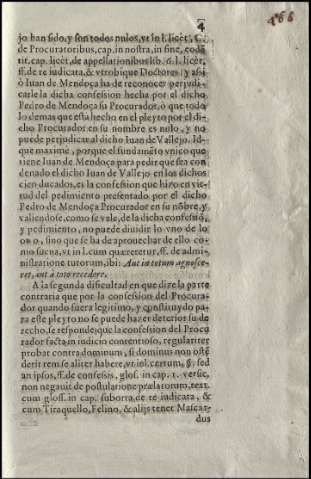 4
166
jo han sido, y son todos nulos, vt in l. licèt, C.
de Procuratoribus, cap. in nostra, in fine, codē
tit. cap. licèt, de appellationibus lib. 6. l. licèt,
ff. de re iudicata, & vtrobique Doctores: y asi
ò Iuan de Mendoça ha de reconocer perjudi-
carle la dicha confession hecha por el dicho
Pedro de Mendoça su Procurador, ò que todo
lo demas que està hecho en el pleyto por el di-
cho Procurador en su nombre es nulo, y no
puede perjudicar al dicho Iuan de Vallejo. Id-
que maximè, porque el fundamēto vnico que
tiene Iuan de Mendoça para pedir que sea con
denado el dicho Iuan de Vallejo en los dichos
cien ducados, es la confession que hizo en vir-
tud del pedimento presentado por el dicho
Pedro de Mendoça Procurador en su nōbre, y
valiendose, como se vale, de la dicha confessiō,
y pedimiento, no puede diuidir lo vno de lo
otro, sino que se ha de aprouechar de ello co-
mo suena, vt in l. cum quæreretur, ff. de admi-
nistratione tutorum, ibi: Aut in totum agnosce-
ret, aut à toto recedere.
A la segunda dificultad en que dize la parte
contraria que por la confession del Procura-
dor quando fuera legitimo, y constituydo pa-
ra este pleyto no se puede hazer deterior su de
recho, se responde, que la confession del Procu
rador facta in iudicio contentioso, regulariter
probat contra dominum, si dominus non ostē
derit rem se aliter habere, vt in l. certum, §. sed
an ipsos, ff. de confessis, glos. in cap. 1. versic.
non negauit de postulatione prælatorum, text.
cum gloss. in cap. suborra, de re iudicata, &
cum Tiraquello, Felino, & alijs tenet Mascar-
dus